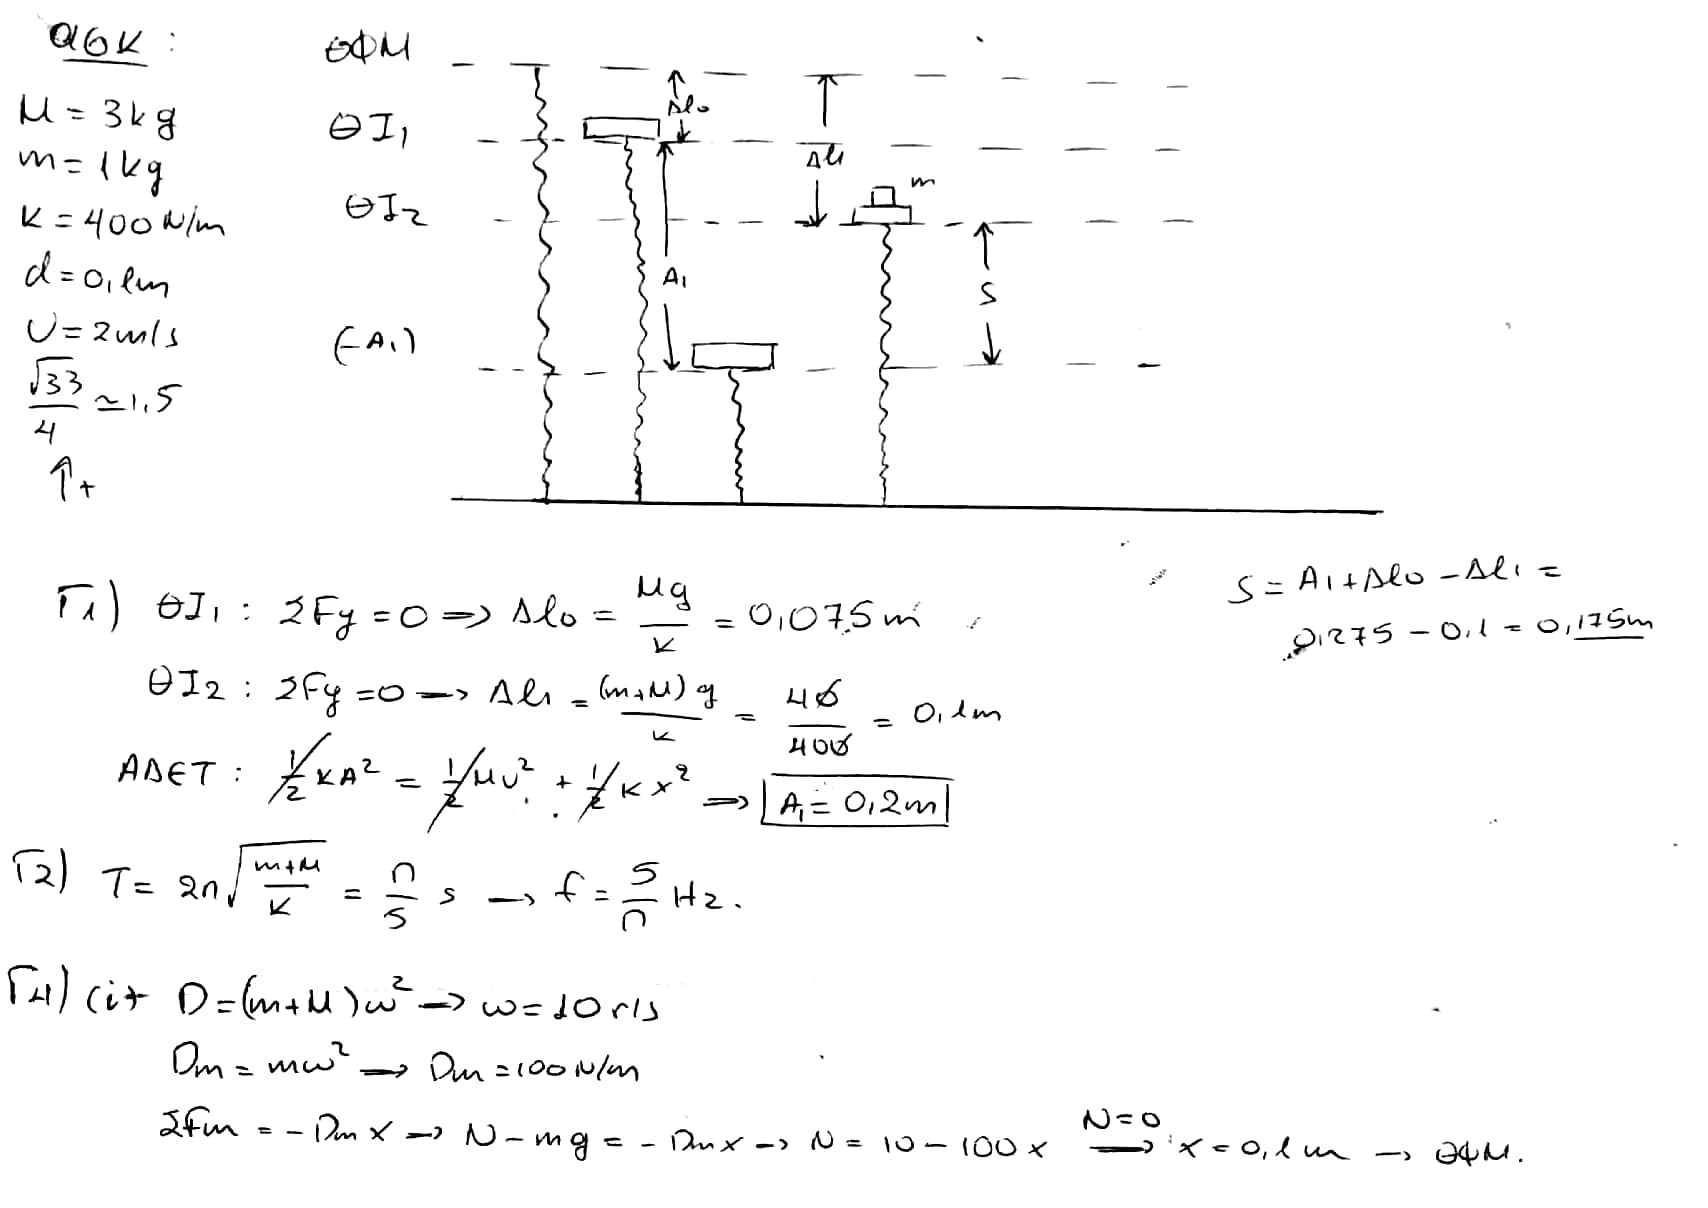 ασκ :
M = 3kg
m = 1kg
K = 400 N/m
d = 0,1m
U = 2m/s
√33/4 ≃ 1,5
↑+
ΘΦΜ
ΘΙ₁
ΘΙ₂
(-A₁)
Δl₀
A₁
Δl₁
m
S
Γ1) ΘΙ₁ : ΣFy = 0 => Δl₀ = Mg/K = 0,075m
ΘΙ₂ : ΣFy = 0 -> Δl₁ = (m+M)g/K = 40/400 = 0,1m
ΑΔΕΤ : 1/2 KA² = 1/2 Mυ² + 1/2 Kx² => A₁ = 0,2m
S = A₁ + Δl₀ - Δl₁ =
0,275 - 0,1 = 0,175m
Γ2) T = 2π√(m+M/K) = π/5 s -> f = 5/π Hz.
Γ4) (i+ D = (m+M)ω² -> ω = 10 r/s
Dm = mω² -> Dm = 100 N/m
ΣFm = - Dm x -> N - mg = - Dm x -> N = 10 - 100x N=0 -> x = 0,1m -> ΘΦΜ.